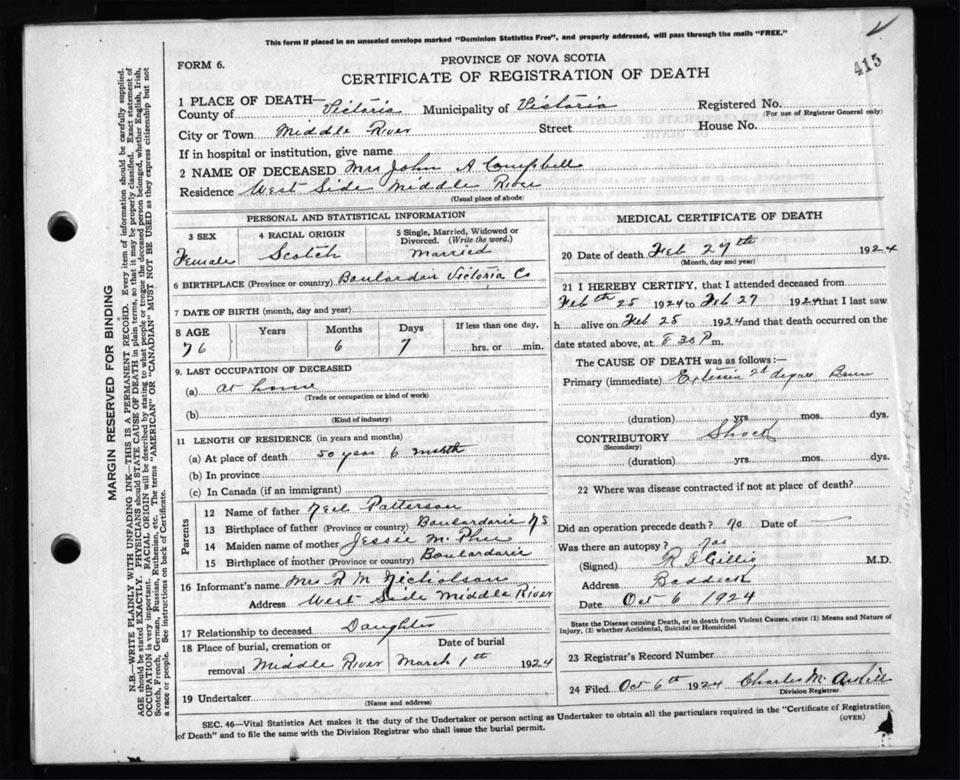 This form if placed in an unsealed envelope marked "Dominion Statistics Free", and properly addressed, will pass through the mails "FREE."
415
FORM 6.
PROVINCE OF NOVA SCOTIA
CERTIFICATE OF REGISTRATION OF DEATH
1 PLACE OF DEATH—
County of Victoria Municipality of Victoria Registered No.
(For use of Registrar General only)
City or Town Middle River Street House No.
If in hospital or institution, give name
2 NAME OF DECEASED Mrs John A Campbell
Residence West Side Middle River
(Usual place of abode)
PERSONAL AND STATISTICAL INFORMATION
3 SEX 4 RACIAL ORIGIN 5 Single, Married, Widowed or Divorced. (Write the word.)
Female Scotch Married
6 BIRTHPLACE (Province or country) Boulardair Victoria Co
7 DATE OF BIRTH (month, day and year)
8 AGE Years Months Days If less than one day,
76 6 7 hrs. or min.
9. LAST OCCUPATION OF DECEASED
(a) at home
(Trade or occupation or kind of work)
(b)
(Kind of industry)
11 LENGTH OF RESIDENCE (in years and months)
(a) At place of death 50 year 6 month
(b) In province
(c) In Canada (if an immigrant)
Parents
12 Name of father Neil Patterson
13 Birthplace of father (Province or country) Boulardarie N S
14 Maiden name of mother Jessie McPhee
15 Birthplace of mother (Province or country) Boulardarie
16 Informant's name Mrs R M Nicholson
Address West Side Middle River
17 Relationship to deceased Daughter
18 Place of burial, cremation or removal Middle River
Date of burial March 1th 1924
19 Undertaker
(Name and address)
MEDICAL CERTIFICATE OF DEATH
20 Date of death Feb 27th 1924
(Month, day and year)
21 I HEREBY CERTIFY, that I attended deceased from
Feb th 25 1924 to Feb 27 1924 that I last saw
h alive on Feb 25 1924 and that death occurred on the
date stated above, at 8 30 P m.
The CAUSE OF DEATH was as follows:—
Primary (immediate) 2d degree Burn
(duration) yrs. mos. dys.
CONTRIBUTORY Shock
(Secondary)
(duration) yrs. mos. dys.
22 Where was disease contracted if not at place of death?
Did an operation precede death? no Date of
Was there an autopsy?
(Signed) R J Gillis M.D.
Address Baddeck
Date Oct 6 1924
State the Disease causing Death, or in death from Violent Causes, state (1) Means and Nature of Injury, (2) whether Accidental, Suicidal or Homicidal
23 Registrar's Record Number
24 Filed Oct 6th 1924 Charles
Division Registrar
SEC. 46—Vital Statistics Act makes it the duty of the Undertaker or person acting as Undertaker to obtain all the particulars required in the "Certificate of Registration
of Death" and to file the same with the Division Registrar who shall issue the burial permit.
(OVER)
MARGIN RESERVED FOR BINDING
N.B.—WRITE PLAINLY WITH UNFADING INK—THIS IS A PERMANENT RECORD. Every item of information should be carefully supplied.
AGE should be stated EXACTLY. PHYSICIANS should STATE CAUSE OF DEATH in plain terms, so that it may be properly classified. Exact statement of
OCCUPATION is very important. RACIAL ORIGIN will be described by stating to what people or tongue the deceased person belonged, whether English, Irish,
Scotch, French, German, Russian, Ruthenian, etc. The terms "AMERICAN" OR "CANADIAN" MUST NOT BE USED as they express citizenship but not
a race or people. See instructions on back of Certificate.